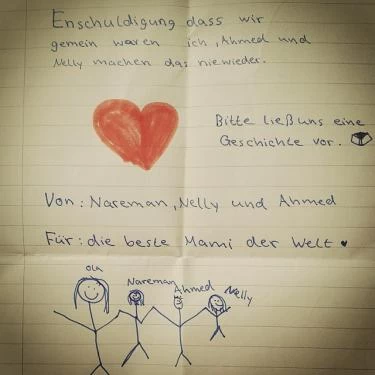 Enschuldigung dass wir
gemein waren ich, Ahmed und
Nelly machen das nie wieder.
Bitte ließ uns eine
Geschichte vor.
Von: Nareman, Nelly und Ahmed
Für: die beste Mami der Welt ♥
Ola
Nareman Ahmed Nelly